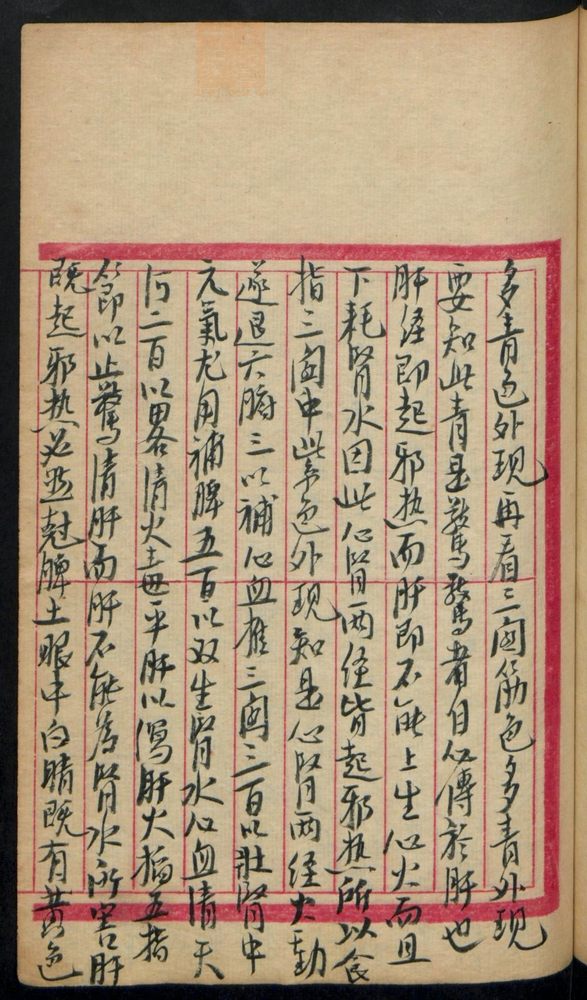 多青色外现再看三関筋色多青外現
要知此青是驚驚者自必傳於肝也
肝経即起邪热而肝即不能上生心火而且
下耗腎水因此心腎两経皆起邪热所以食
指三関中紫色外現知是心腎两経火動
遂退六腑三以補心血推三関三百以壯腎中
元氣尤用補脾五百以双生腎水心血清天
河二百以畧清火毒平肝以瀉肝火掐五指
節以止驚清肝而肝不能為腎水所害肝
既起邪热必然尅脾土眼中白睛既有黄色